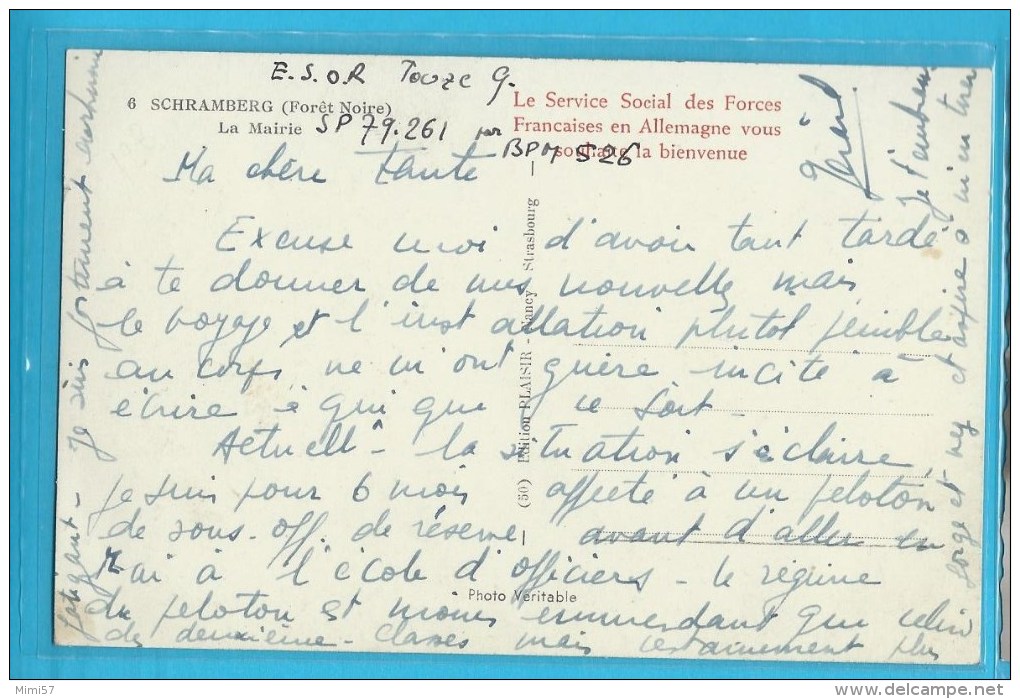 E.S.O.R Touze G.
6 SCHRAMBERG (Forêt Noire)
La Mairie
SP 79.261 par BPM 526
Le Service Social des Forces
Francaises en Allemagne vous
souhaite la bienvenue
Ma chère Tante
Excuse moi d'avoir tant tardé
à te donner de mes nouvelles mais
le voyage et l'installation plutot pénible
au corps ne m'ont guère incité à
écrire à qui que ce soit.
Actuellt - la situation s'éclaire,
je suis pour 6 mois affecté à un peloton
de sous. off. de réserve, avant d'aller en
mai à l'école d'officiers - le régime
du peloton est moins emmerdant que celui
de deuxième - classes mais certainement plus
fatigant - Je suis fortement enrhumé
Je t'embrasse
Gérard
(50) Edition PLAISIR - Nancy - Strasbourg
Photo Véritable
Mimi57
delcampe.net